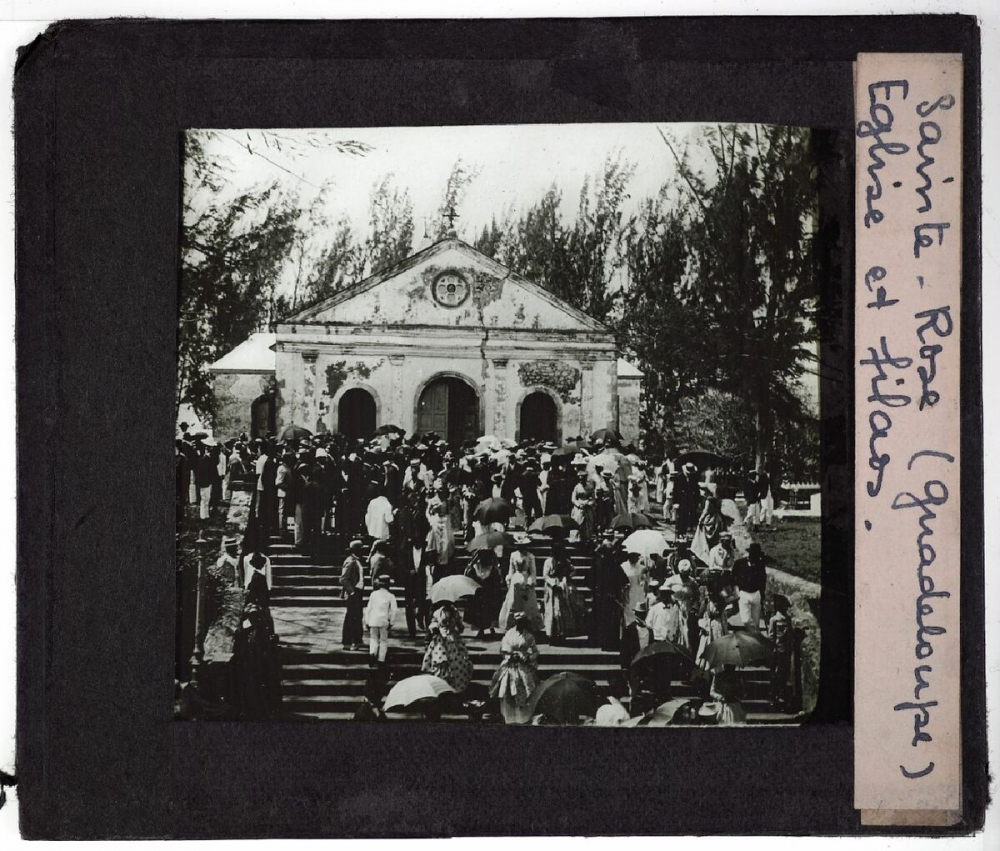 Sainte-Rose (Guadeloupe)
Eglise et filaos.